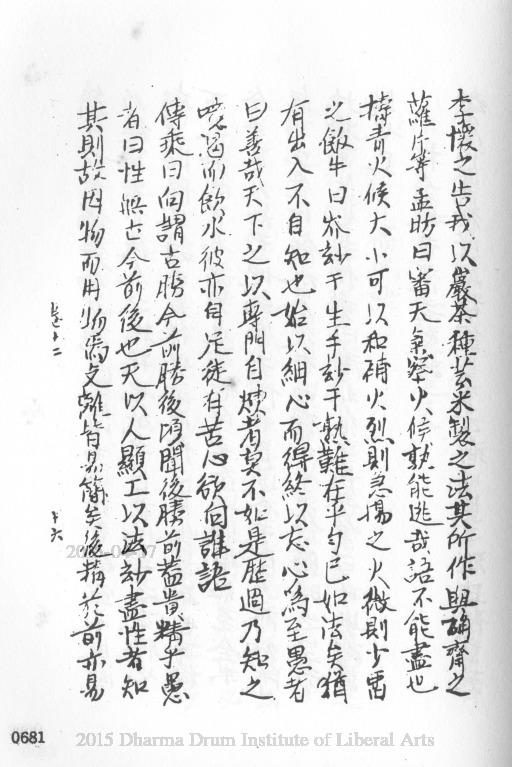 李懷之告我以巖茶種芸采製之法其所作與確齋之
蘿片等孟昉曰審天氣察火候孰能逃哉語不能盡也
擣青火候大小可以和補火烈則急揚之火微則少留
之飯牛曰茶訣干生手訣干熟難在乎勻已如法矣猶
有出入不自知也始以細心而得終以忘心為至愚者
曰善哉天下之以專門自煉者莫不如是歷過乃知之
曉渴而飲水彼亦自足徒有苦心欲向誰語
傳乘曰向謂古勝今前勝後頃聞後勝前蓋貴精乎愚
者曰性無古今前後也天以人顯工以法訣盡性者知
其則故因物而用物焉文離皆易簡矣後精於前亦易
卷十二
十六
Q681
2015 Dharma Drum Institute of Liberal Arts